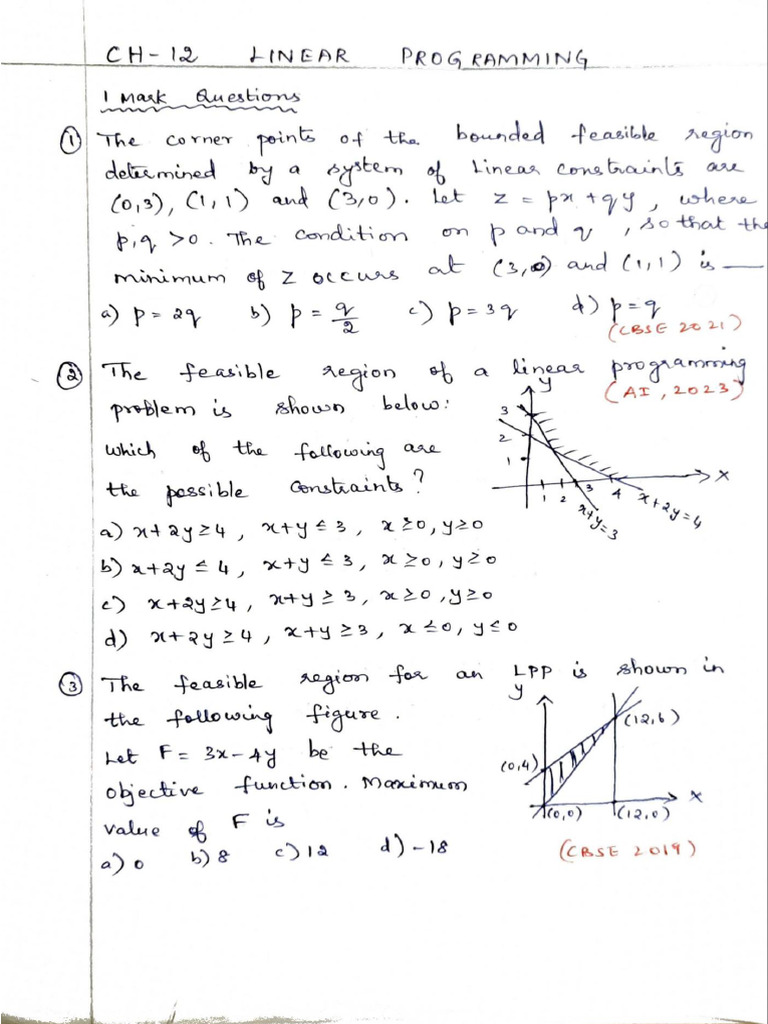 CH-12 LINEAR PROGRAMMING
1 Mark Questions
① The corner points of the bounded feasible region
determined by a system of Linear constraints are
(0,3), (1,1) and (3,0). Let z = px + qy, where
p,q >0. The condition on p and q, so that the
minimum of z occurs at (3,0) and (1,1) is —
a) p = 2q b) p = q/2 c) p = 3q d) p = q
(CBSE 2021)
② The feasible region of a linear programming
(AI, 2023)
problem is shown below:
which of the following are
the possible constraints?
y
3
2
1
1 2 3 4
x
x+y=3
x+2y=4
a) x+2y≥4, x+y≤3, x≥0, y≥0
b) x+2y≤4, x+y≤3, x≥0, y≥0
c) x+2y≥4, x+y≥3, x≥0, y≥0
d) x+2y≥4, x+y≥3, x≤0, y≤0
③ The feasible region for an LPP is shown in
the following figure.
Let F = 3x-4y be the
objective function. Maximum
value of F is
y
(12,6)
(0,4)
x
(0,0) (12,0)
a) 0 b) 8 c) 12 d) -18
(CBSE 2019)